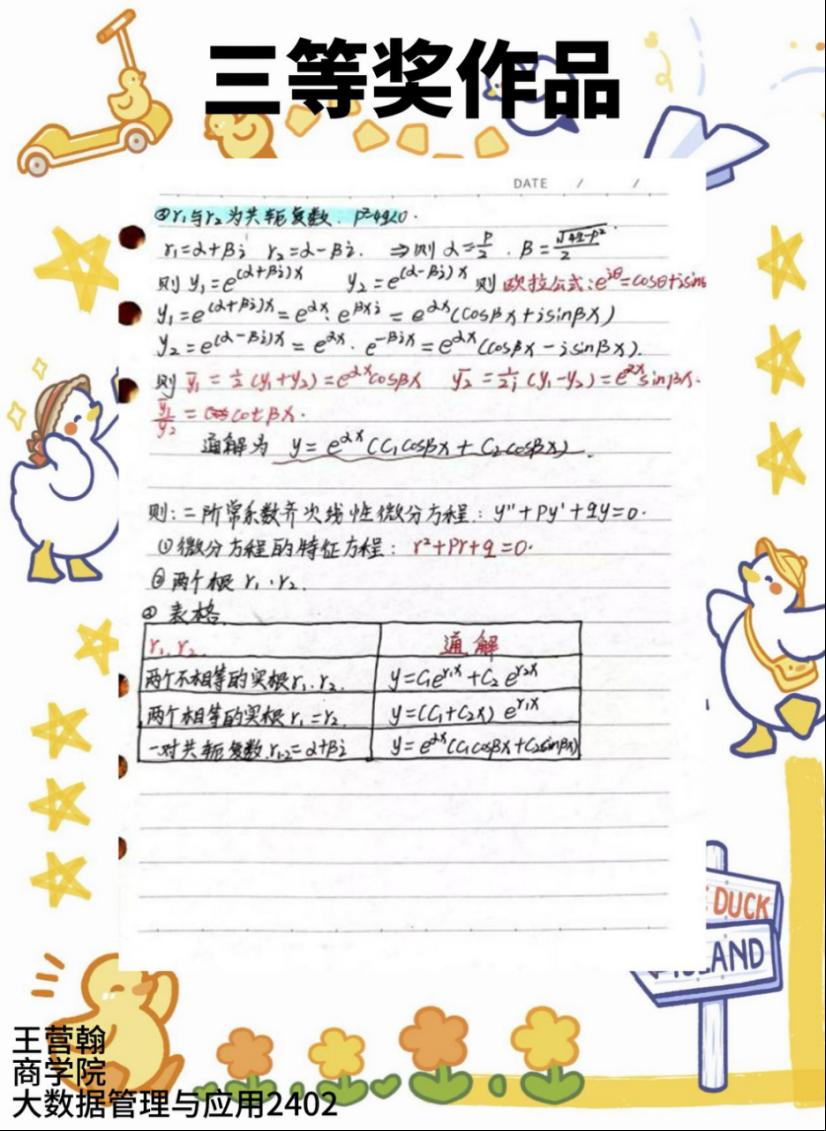 三等奖作品
DATE / /
②r₁与r₂为共轭复数. p²-4q<0.
r₁=α+βi r₂=α-βi. ⇒则 α=p/2 . β=√(4q-p²)/2
则 y₁=e^(α+βi)x y₂=e^(α-βi)x 则 欧拉公式:e^iθ=cosθ+isinθ
y₁=e^(α+βi)x=e^αx·e^βxi=e^αx(cosβx+isinβx)
y₂=e^(α-βi)x=e^αx·e^-βix=e^αx(cosβx-isinβx).
则 ȳ₁=1/2(y₁+y₂)=e^αx cosβx ȳ₂=1/2i(y₁-y₂)=e^αx sinβx.
ȳ₁/ȳ₂=cotβx.
通解为 y=e^αx(C₁cosβx+C₂cosβx).
则:二阶常系数齐次线性微分方程:y''+Py'+qy=0.
①微分方程的特征方程: r²+Pr+q=0.
②两个根 r₁.r₂.
表格.
r₁.r₂. 通解
两个不相等的实根r₁.r₂. y=C₁e^r₁x+C₂e^r₂x
两个相等的实根r₁=r₂. y=(C₁+C₂x)e^r₁x
一对共轭复数.r₁.₂=α+βi y=e^αx(C₁cosβx+C₂sinβx)
DUCK
LAND
王营翰
商学院
大数据管理与应用2402